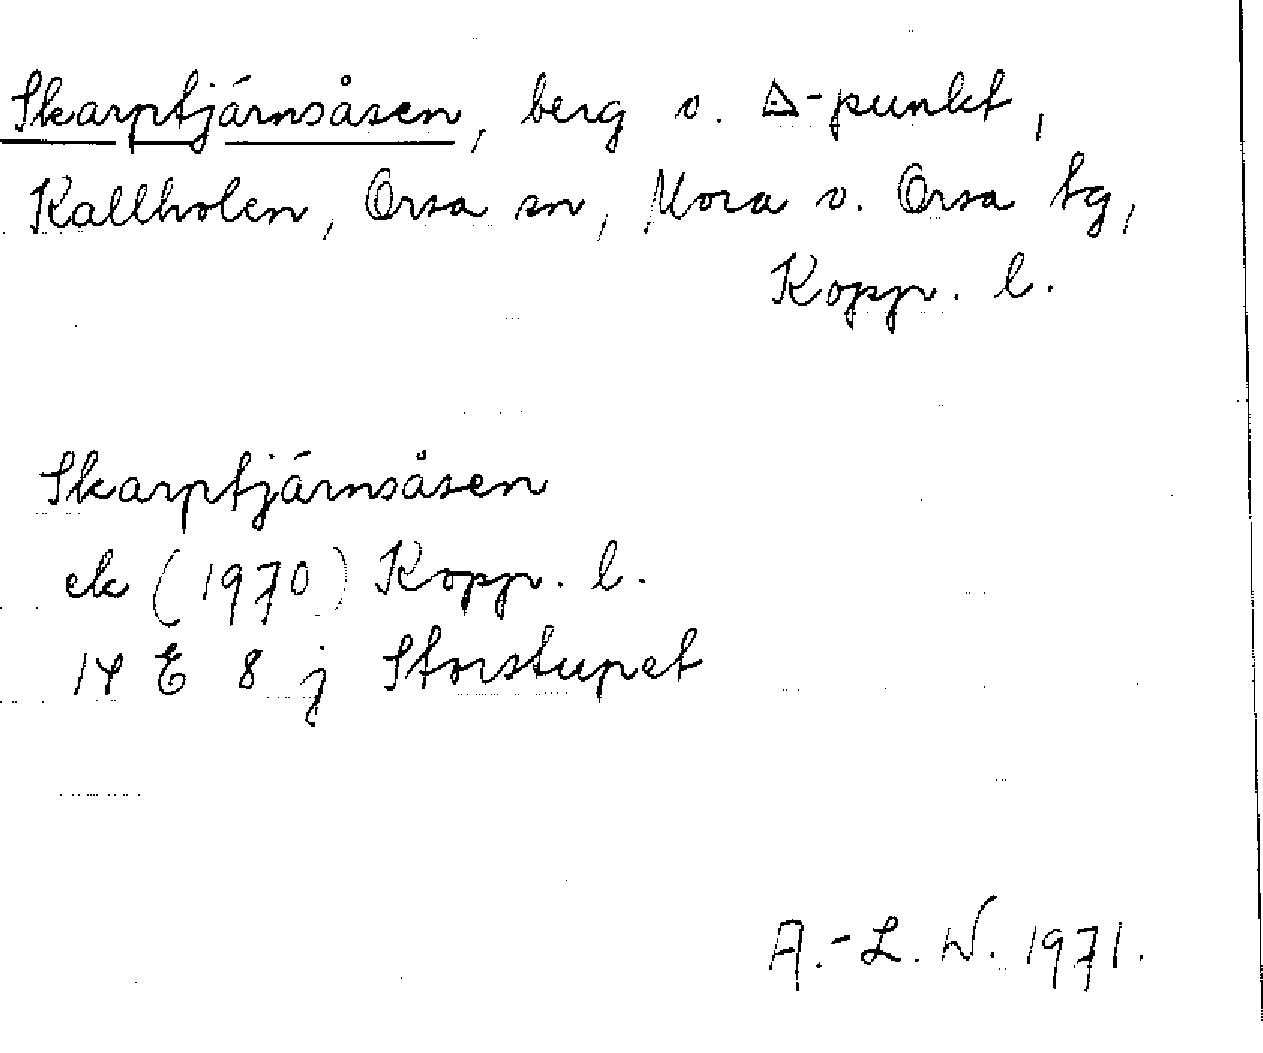 Skarptjärnsåsen, berg o. △-punkt,
Kallholen, Orsa sn, Mora o. Orsa tg,
Kopp. l.
Skarptjärnsåsen
ek (1970) Kopp. l.
14 E 8 j Storstupet
A.-L. W. 1971.